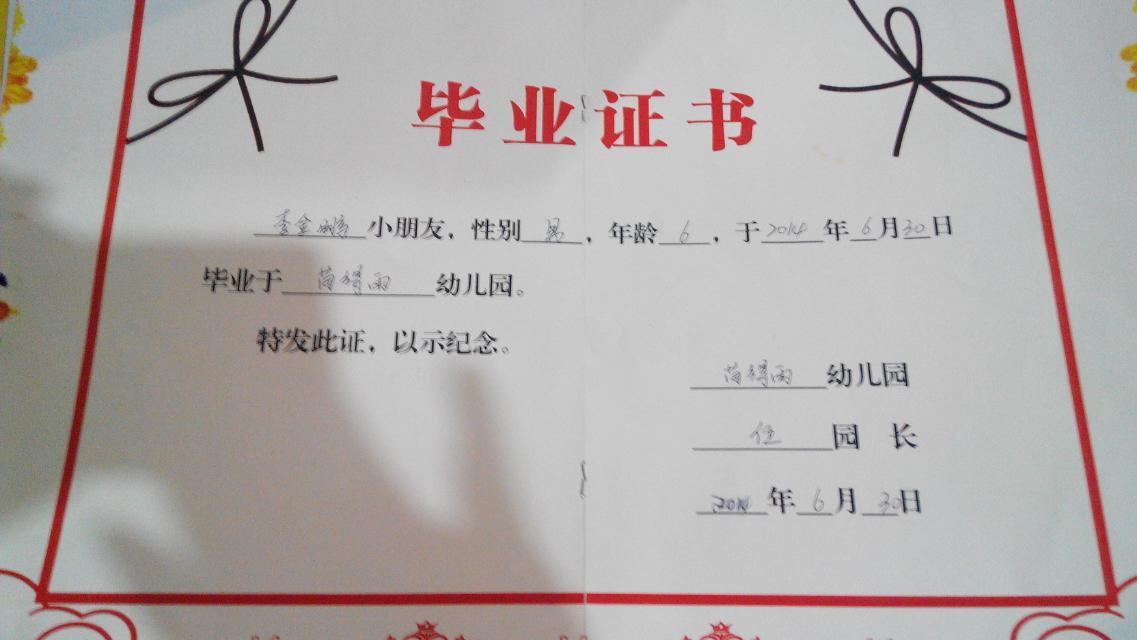 毕业证书
李金鹏小朋友，性别男，年龄6，于2014年6月30日
毕业于苗得雨幼儿园。
特发此证，以示纪念。
苗得雨幼儿园
任园长
2014年6月30日